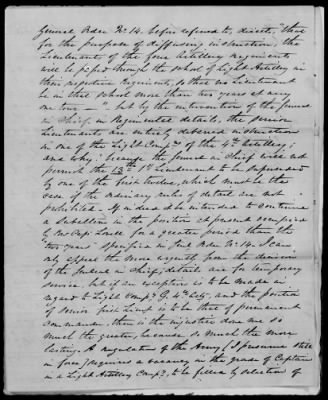 General Order No. 14, before referred to, directs, "that
for the purpose of diffusing instruction, the
Lieutenants of the four Artillery Regiments
will be passed through the school of Light Artillery in
their respective Regiments, so that no Lieutenant
be in that school more than two years at any
one tour — ", but by the intervention of the General
in Chief, in Regimental details, the senior
Lieutenants are entirely debarred instruction
in one of the Light Comp.s of the 4th Artillery;
and why? because the General in Chief will not
permit the 13th 1st Lieutenant to be superseded
by one of the first twelve, which must be the
case if the ordinary rules of detail are not
prohibited. If indeed it be intended to continue
a subaltern in the position at present occupied
by for a greater period than the
"two years" specified in Genl Order No. 14. I can
only appeal the more urgently from the decision
of the General in Chief; details are for temporary
service, but if an exception is to be made in
regard to Light Comp.y G. 4th Arty, and the position
of senior first Lieut is to be that of permanent
commander, then is the injustice done me so
much the greater, because so much the more
lasting. A regulation of the Army (I presume still
in force) requires a vacancy in the grade of Captain
in a Light Artillery Comp.y, to be filled by selection of